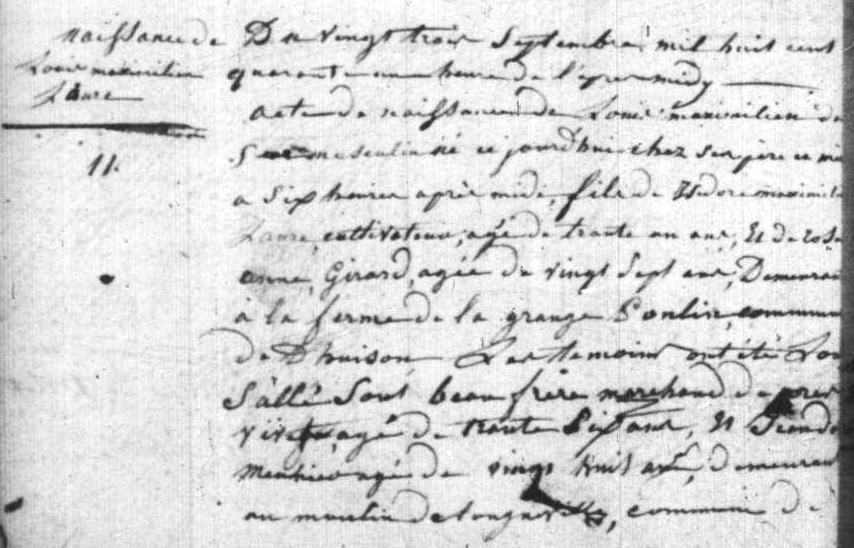 naissance de
Louis maximilien
Laure
11.
Du vingt trois Septembre mil huit cent
quarante une heure de l'apres midy
acte de naissance de Louis maximilien de
Sexe masculin né ce jourd'hui chez son père ce
a Six heures après midi, fils de Isidore maximili
Laure, cultivateur, agé de trante un ans, Et de rosa
anne, Girard, agée de vingt Sept ans, Demeurant
à la ferme de la grange commune
de D'huison Les temoins ont été Lou
Sallé Sont beau frère marchand de
agé de trante Six ans, Et Jean
meunier agé de vingt huit ans, demeurant
au moulin de longueville, commune de